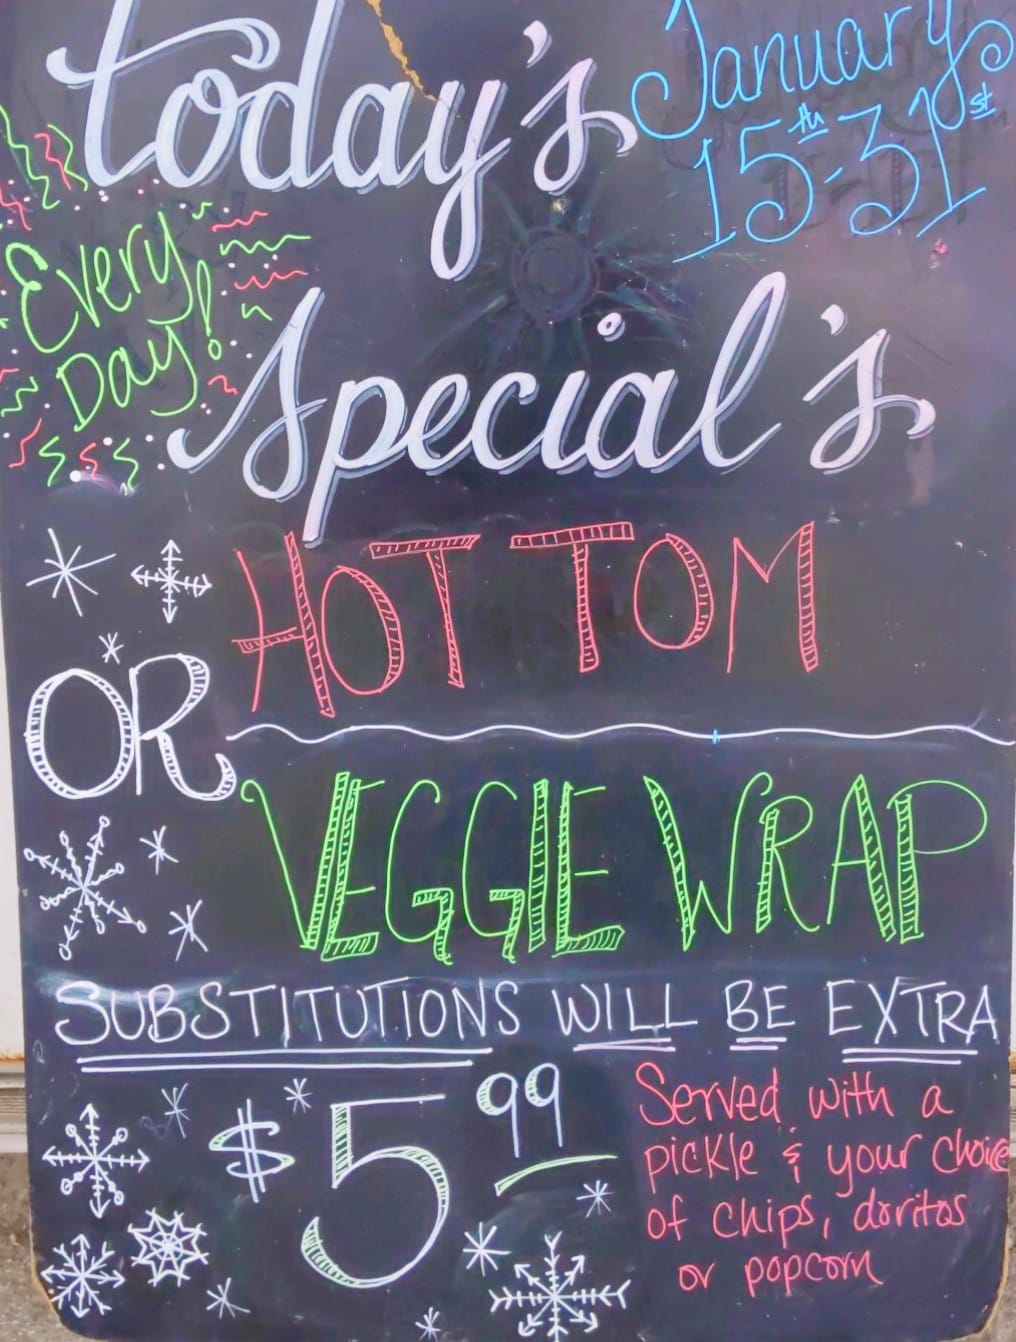 Today's
January
15th-31st
Every
Day!
Special's
HOT TOM
OR
VEGGIE WRAP
SUBSTITUTIONS WILL BE EXTRA
$5.99
Served with a
pickle & your choice
of chips, doritos
or popcorn